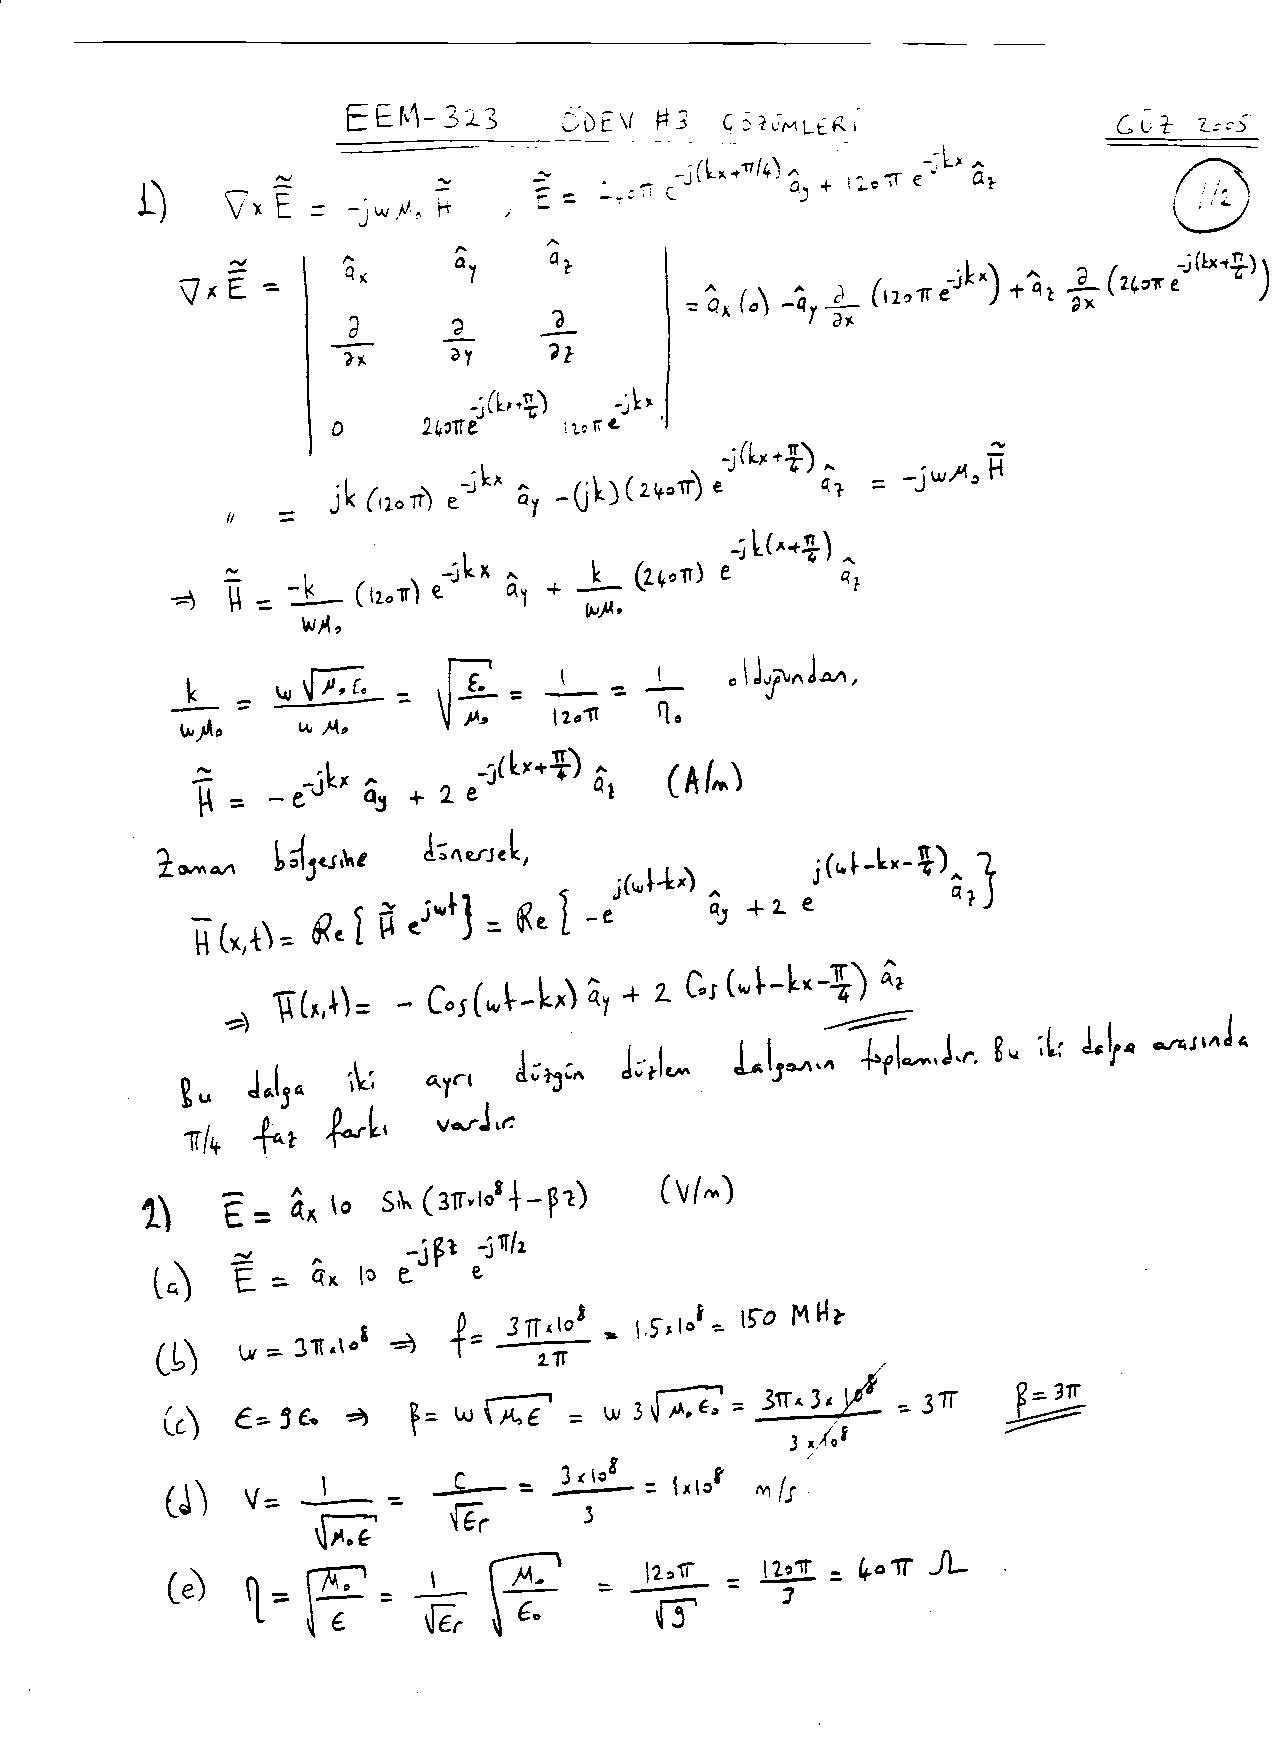 EEM-323 ÖDEV #3 ÇÖZÜMLERİ GÜZ 2005
1/2
1) ∇×Ẽ = -jwμ₀ H̃ , Ẽ = 240π e^{-j(kx+π/4)} â_y + 120π e^{-jkx} â_z
∇×Ẽ = | â_x â_y â_z | = â_x (0) - â_y ∂/∂x (120π e^{-jkx}) + â_z ∂/∂x (240π e^{-j(kx+π/4)})
∂/∂x ∂/∂y ∂/∂z
0 240π e^{-j(kx+π/4)} 120π e^{-jkx}
" = jk (120π) e^{-jkx} â_y - (jk)(240π) e^{-j(kx+π/4)} â_z = -jwμ₀ H̃
⇒ H̃ = -k/wμ₀ (120π) e^{-jkx} â_y + k/wμ₀ (240π) e^{-jk(x+π/4)} â_z
k/wμ₀ = w√μ₀ε₀ / wμ₀ = √(ε₀/μ₀) = 1/120π = 1/η₀ olduğundan,
H̃ = -e^{-jkx} â_y + 2 e^{-j(kx+π/4)} â_z (A/m)
Zaman bölgesine dönersek,
H̄(x,t) = Re{H̃ e^{jwt}} = Re{-e^{j(wt-kx)} â_y + 2 e^{j(wt-kx-π/4)} â_z}
⇒ H̄(x,t) = - Cos(wt-kx) â_y + 2 Cos(wt-kx-π/4) â_z
Bu dalga iki ayrı düzgün düzlem dalganın toplamıdır. Bu iki dalga arasında
π/4 faz farkı vardır.
2) Ē = â_x 10 Sin (3π×10⁸t - βz) (V/m)
(a) Ẽ = â_x 10 e^{-jβz} e^{-jπ/2}
(b) w = 3π×10⁸ ⇒ f = 3π×10⁸/2π = 1.5×10⁸ = 150 MHz
(c) ε = 9ε₀ ⇒ β = w√μ₀ε = w 3√μ₀ε₀ = 3π×3×10⁸ / 3×10⁸ = 3π β = 3π
(d) v = 1/√μ₀ε = c/√εr = 3×10⁸/3 = 1×10⁸ m/s
(e) η = √(μ₀/ε) = 1/√εr √(μ₀/ε₀) = 120π/√9 = 120π/3 = 40π Ω